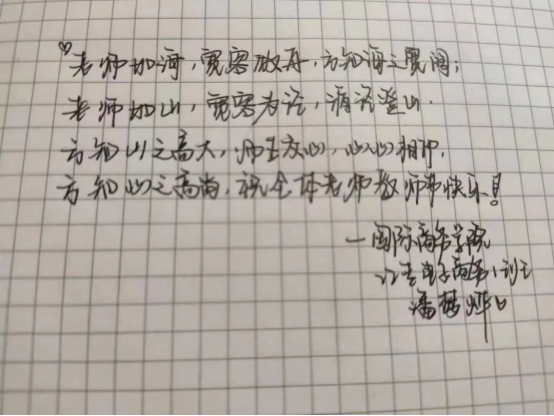 老师如海，宽容做舟，方知海之宽阔；
老师如山，宽容为径，循径登山，
方知山之高大，师生交心，心心相印，
方知心之高尚，祝全体老师教师节快乐！
—国际商务学院
电子商务1班
潘